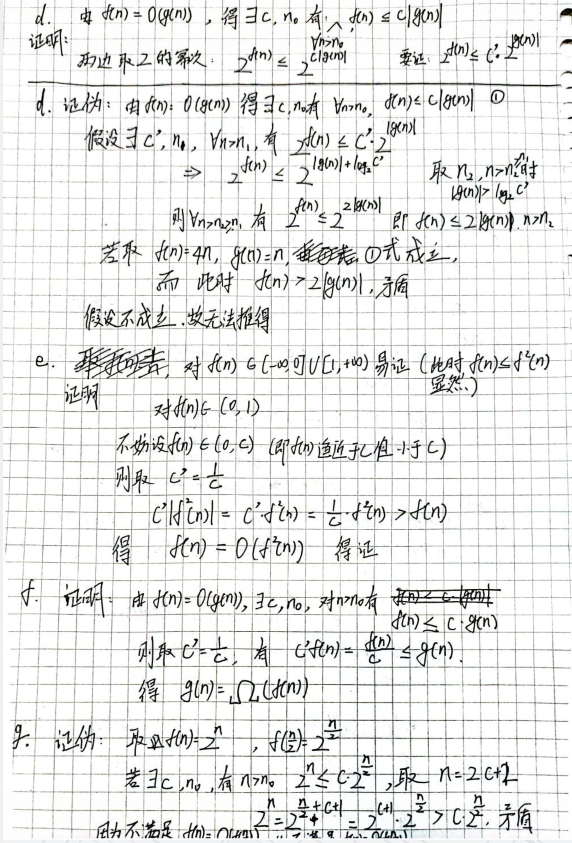 d. 由 f(n)=O(g(n)), 得 ∃c, n₀ 有 ∀n>n₀ f(n) ≤ c|g(n)|
证明:
两边取2的幂次: 2^{f(n)} ≤ 2^{c|g(n)|} 要证: 2^{f(n)} ≤ c'·2^{|g(n)|}
d. 证伪: 由 f(n)=O(g(n)) 得 ∃c, n₀ 有 ∀n>n₀, f(n) ≤ c|g(n)| ①
假设 ∃c', n₁, ∀n>n₁, 有 2^{f(n)} ≤ c'·2^{|g(n)|}
⇒ 2^{f(n)} ≤ 2^{|g(n)|+log₂c'} 取 n₂, n>n₂时
|g(n)|>log₂c'
则 ∀n>n₂>n₁, 有 2^{f(n)} ≤ 2^{2|g(n)|} 即 f(n) ≤ 2|g(n)|, n>n₂
若取 f(n)=4n, g(n)=n, ①式成立,
而此时 f(n)>2|g(n)|, 矛盾
假设不成立. 故无法推得
e. 对 f(n)∈(-∞,0]∪[1,+∞) 易证 (此时 f(n)≤f²(n)
显然)
证明
对 f(n)∈(0,1)
不妨设 f(n)∈(0,c) (即 f(n) 值小于 c)
则取 c'=1/c
c'|f²(n)| = c'·f²(n) = 1/c·f²(n) > f(n)
得 f(n)=O(f²(n)) 得证
f. 证明: 由 f(n)=O(g(n)), ∃c, n₀, 对 n>n₀ 有
f(n) ≤ c·g(n)
则取 c'=1/c, 有 c'f(n) = f(n)/c ≤ g(n).
得 g(n)=Ω(f(n))
g. 证伪: 取 f(n)=2^n, f(n/2)=2^{n/2}
若 ∃c, n₀, 有 n>n₀ 2^n ≤ c·2^{n/2}, 取 n=2c+2
2^n = 2^{n/2+c+1} = 2^{c+1}·2^{n/2} > c·2^{n/2}, 矛盾
因为不满足